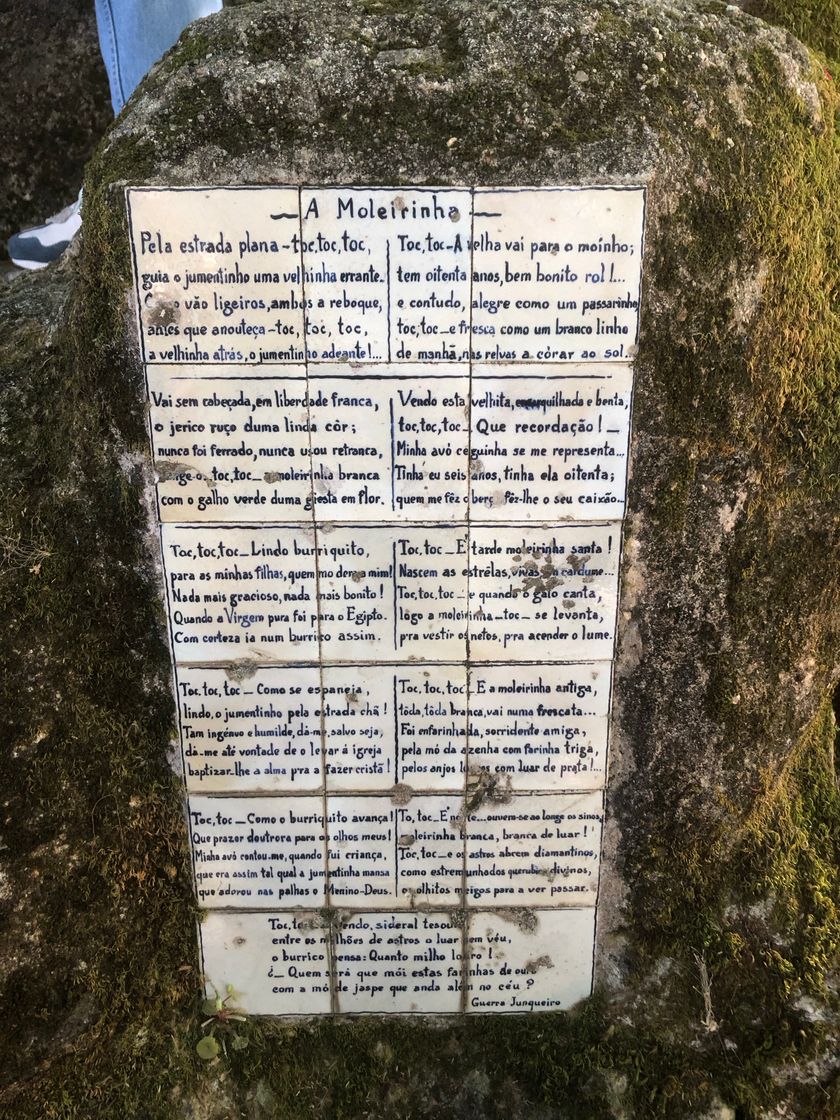 A Moleirinha
Pela estrada plana-toc,toc,toc,
guia o jumentinho uma velhinha errante.
vão ligeiros,ambos a reboque,
antes que anouteça-toc, toc, toc,
a velhinha atrás, o jumentinho adeante!...
Toc,toc-A velha vai para o moínho;
tem oitenta anos,bem bonito rol!...
e contudo, alegre como um passarinho
toc,toc_e fresca como um branco linho
de manhã,nas relvas a córar ao sol.
Vai sem cabeçada,em liberdade franca,
o jerico ruço duma linda côr;
nunca foi ferrado,nunca usou retranca,
toc,toc_a moleirinha branca
com o galho verde duma giesta em flor.
Vendo esta velhita, encarquilhada e benta,
toc,toc,toc_ Que recordação!_
Minha avó ceguinha se me representa...
Tinha eu seis anos, tinha ela oitenta;
quem me fêz o berço fêz-lhe o seu caixão...
Toc,toc,toc_Lindo burriquito,
para as minhas filhas,quem mo dera a mim!
Nada mais gracioso, nada mais bonito!
Quando a Virgem pura foi para o Egipto.
Com certeza ia num burrico assim.
Toc,toc_É tarde moleirinha santa!
Nascem as estrêlas,vivas em cardume...
Toc,toc,toc_e quando o galo canta,
logo a moleirinha_toc_ se levanta,
p'ra vestir os netos, p'ra acender o lume.
Toc, toc, toc_ Como se espaneja,
lindo, o jumentinho pela estrada chã!
Tam ingénuo e humilde, dá-me, salvo seja,
dá-me até vontade de o levar á igreja
baptizar-lhe a alma p'ra a fazer cristã!
Toc, toc, toc_E a moleirinha antiga,
tôda,tôda branca,vai numa frescata...
Foi enfarinhada, sorridente amiga,
pela mó da azenha com farinha triga,
pelos anjos com luar de prata!...
Toc, toc_Como o burriquito avança!
Que prazor doutrora para os olhos meus!
Minha avó contou-me, quando fui criança,
que era assim tal qual a jumentinha mansa
que adorou nas palhas o Menino-Deus.
To, toc_É noite...ouvem-se ao longe os sinos,
moleirinha branca, branca de luar!
Toc, toc_e os astros abrem diamantinos,
como estremunhados querubins divinos,
os olhitos meigos para a ver passar.
Toc, vendo, sideral tesouro
entre os milhões de astros o luar sem véu,
o burrico pensa: Quanto milho louro!
¿_ Quem será que mói estas farinhas de ouro
com a mó de jaspe que anda além no céu?
Guerra Junqueiro